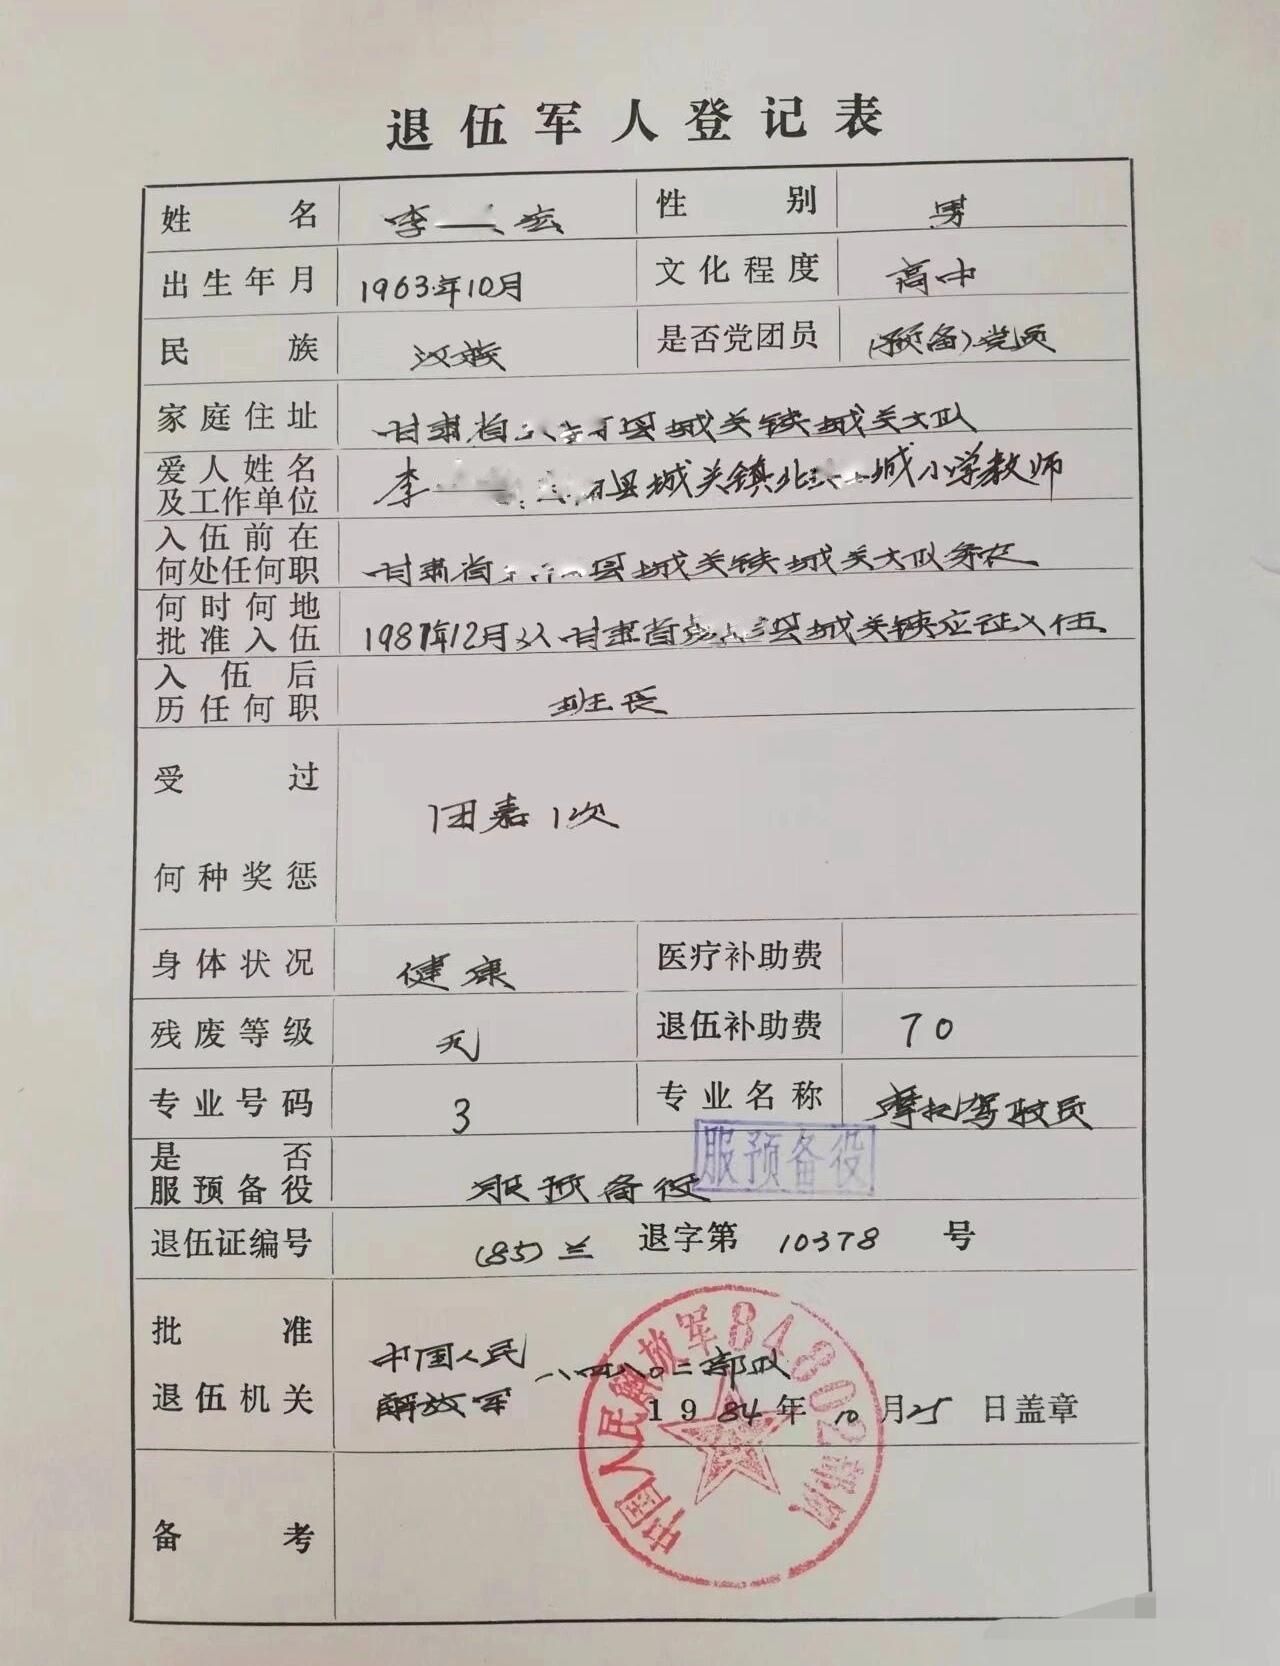 退伍军人登记表
姓名 李 宏 性别 男
出生年月 1963年10月 文化程度 高中
民族 汉族 是否党团员 (预备)党员
家庭住址 甘肃省 县城关镇城关大队
爱人姓名及工作单位 李 县城关镇北 城小学教师
入伍前在何处任何职 甘肃省 县城关镇城关大队务农
何时何地批准入伍 1981年12月从甘肃省 县城关镇应征入伍
入伍后历任何职 班长
受过何种奖惩 团嘉1次
身体状况 健康 医疗补助费
残废等级 无 退伍补助费 70
专业号码 3 专业名称 摩托驾驶员
是否服预备役 服预备役 服预备役
退伍证编号 (85)兰 退字第 10378 号
批准退伍机关 中国人民解放军 八四八〇二部队
1984年10月25日盖章
中国人民解放军84802部队
备考